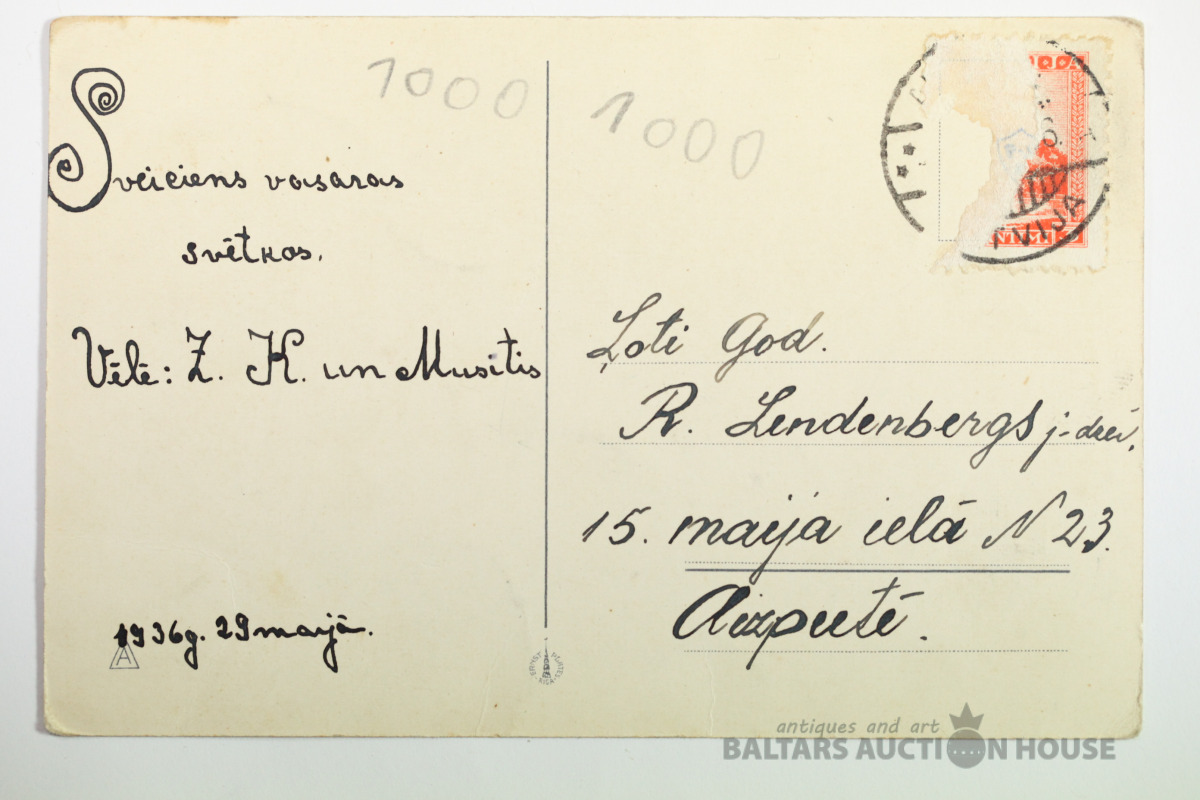 1000
Sveiciens vasaras
svētkos.
Vēlē: Z. K. un Musitis
1936g. 29 maijā.
A
1000
VIJA
Ļoti God.
R. Lendenbergs j-dzei.
15. maija ielā N 23.
Aizputē.
ERNST PLATES RIGA
antiques and art
BALTARS AUCTION HOUSE